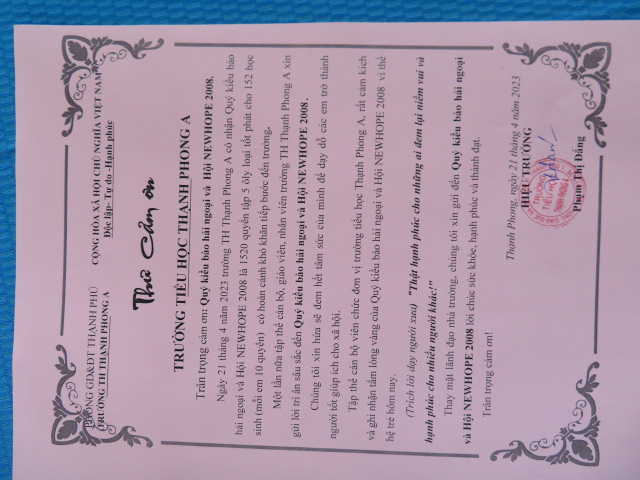 PHÒNG GD&ĐT THẠNH PHÚ
TRƯỜNG TH THẠNH PHONG A
CỘNG HÒA XÃ HỘI CHỦ NGHĨA VIỆT NAM
Độc lập- Tự do -Hạnh phúc
Thư Cảm ơn
TRƯỜNG TIỂU HỌC THẠNH PHONG A
Trân trọng cảm ơn: Quý kiều bào hải ngoại và Hội NEWHOPE 2008.
Ngày 21 tháng 4 năm 2023 trường TH Thạnh Phong A có nhận Quý kiều bào
hải ngoại và Hội NEWHOPE 2008 là 1520 quyển tập 5 ôly loại tốt phát cho 152 học
sinh (mỗi em 10 quyển) có hoàn cảnh khó khăn tiếp bước đến trường.
Một lần nữa tập thể cán bộ, giáo viên, nhân viên trường TH Thạnh Phong A xin
gửi lời tri ân sâu sắc đến Quý kiều bào hải ngoại và Hội NEWHOPE 2008.
Chúng tôi xin hứa sẽ đem hết tâm sức của mình để dạy dỗ các em trở thành
người tốt giúp ích cho xã hội.
Tập thể cán bộ viên chức đơn vị trường tiểu học Thạnh Phong A, rất cảm kích
và ghi nhận tấm lòng vàng của Quý kiều bào hải ngoại và Hội NEWHOPE 2008 vì thế
hệ trẻ hôm nay.
(Trích lời dạy người xưa) "Thật hạnh phúc cho những ai đem lại niềm vui và
hạnh phúc cho nhiều người khác!"
Thay mặt lãnh đạo nhà trường, chúng tôi xin gửi đến Quý kiều bào hải ngoại
và Hội NEWHOPE 2008 lời chúc sức khỏe, hạnh phúc và thành đạt.
Trân trọng cảm ơn!
Thạnh Phong, ngày 21 tháng 4 năm 2023
HIỆU TRƯỞNG
TRƯỜNG
TIỂU HỌC
THẠNH PHONG A
Phạm Thị Đẳng